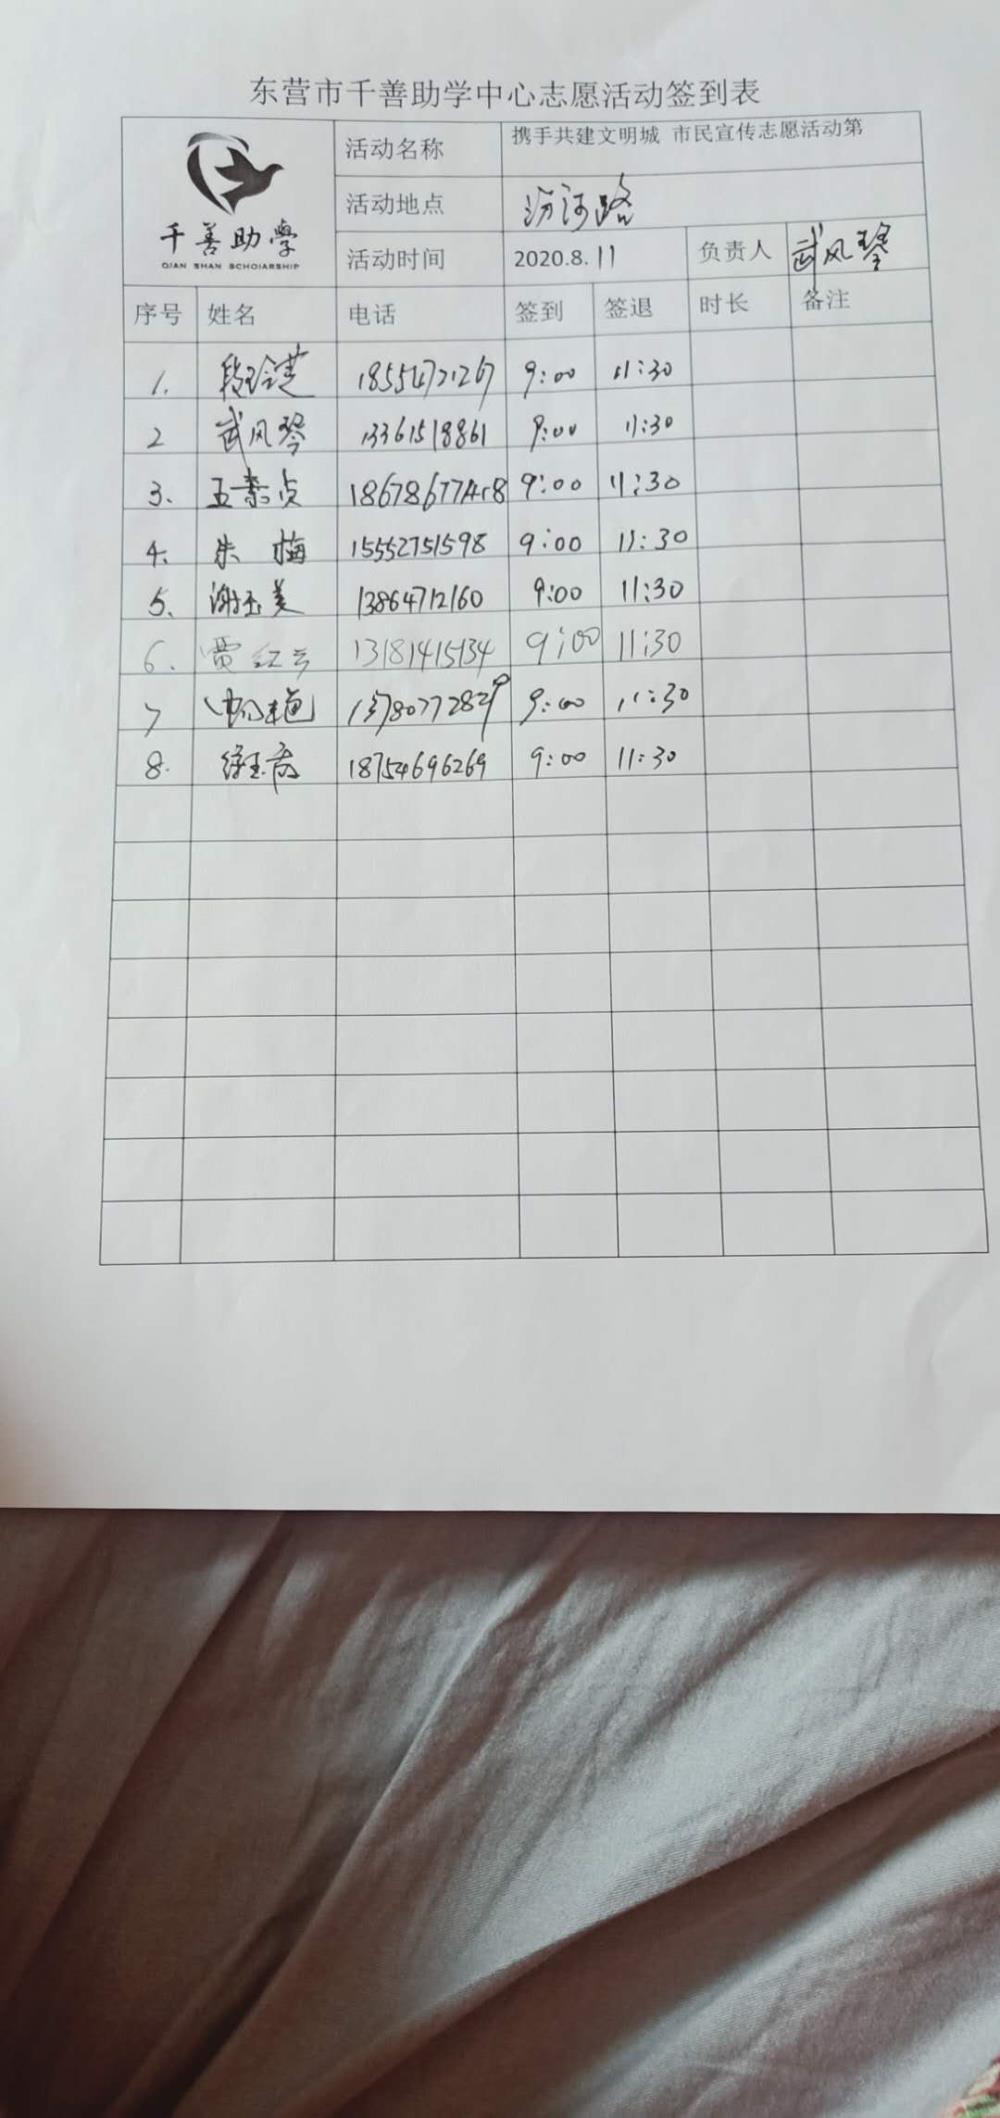 东营市千善助学中心志愿活动签到表
千善助学
QIAN SHAN SCHOIARSHIP
活动名称 携手共建文明城 市民宣传志愿活动第
活动地点 汾河路
活动时间 2020.8.11 负责人 武风琴
序号 姓名 电话 签到 签退 时长 备注
1. 18554721267 9:00 11:30
2 武风琴 13361518861 9:00 11:30
3. 王素贞 9:00 11:30
4. 朱梅 15552751598 9:00 11:30
5. 谢玉美 13864712160 9:00 11:30
6. 贾红云 13181415134 9:00 11:30
7 9:00 11:30
8. 18754696269 9:00 11:30